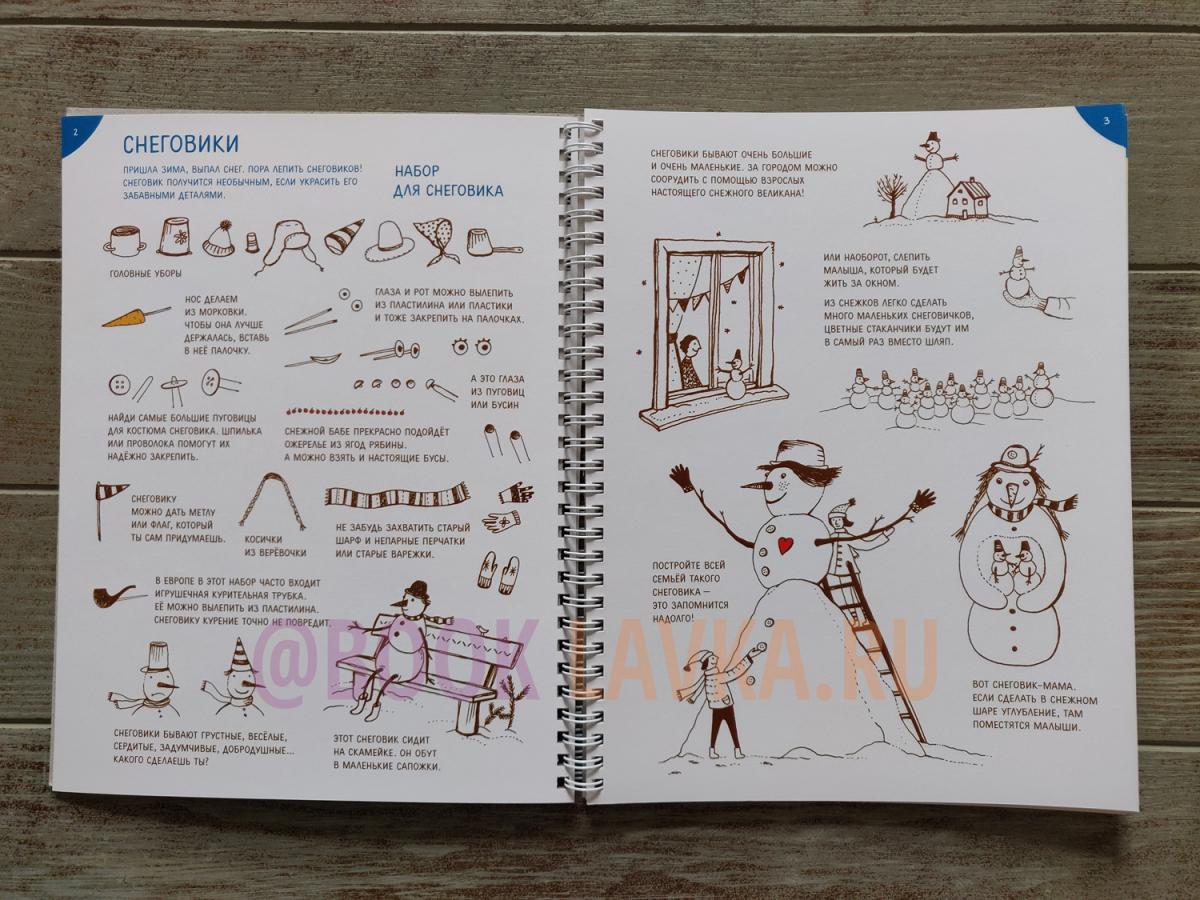 2
СНЕГОВИКИ
ПРИШЛА ЗИМА, ВЫПАЛ СНЕГ. ПОРА ЛЕПИТЬ СНЕГОВИКОВ!
СНЕГОВИК ПОЛУЧИТСЯ НЕОБЫЧНЫМ, ЕСЛИ УКРАСИТЬ ЕГО
ЗАБАВНЫМИ ДЕТАЛЯМИ.
НАБОР
ДЛЯ СНЕГОВИКА
ГОЛОВНЫЕ УБОРЫ
НОС ДЕЛАЕМ
ИЗ МОРКОВКИ.
ЧТОБЫ ОНА ЛУЧШЕ
ДЕРЖАЛАСЬ, ВСТАВЬ
В НЕЁ ПАЛОЧКУ.
ГЛАЗА И РОТ МОЖНО ВЫЛЕПИТЬ
ИЗ ПЛАСТИЛИНА ИЛИ ПЛАСТИКИ
И ТОЖЕ ЗАКРЕПИТЬ НА ПАЛОЧКАХ.
А ЭТО ГЛАЗА
ИЗ ПУГОВИЦ
ИЛИ БУСИН
НАЙДИ САМЫЕ БОЛЬШИЕ ПУГОВИЦЫ
ДЛЯ КОСТЮМА СНЕГОВИКА. ШПИЛЬКА
ИЛИ ПРОВОЛОКА ПОМОГУТ ИХ
НАДЁЖНО ЗАКРЕПИТЬ.
СНЕЖНОЙ БАБЕ ПРЕКРАСНО ПОДОЙДЁТ
ОЖЕРЕЛЬЕ ИЗ ЯГОД РЯБИНЫ.
А МОЖНО ВЗЯТЬ И НАСТОЯЩИЕ БУСЫ.
СНЕГОВИКУ
МОЖНО ДАТЬ МЕТЛУ
ИЛИ ФЛАГ, КОТОРЫЙ
ТЫ САМ ПРИДУМАЕШЬ.
КОСИЧКИ
ИЗ ВЕРЁВОЧКИ
НЕ ЗАБУДЬ ЗАХВАТИТЬ СТАРЫЙ
ШАРФ И НЕПАРНЫЕ ПЕРЧАТКИ
ИЛИ СТАРЫЕ ВАРЕЖКИ.
В ЕВРОПЕ В ЭТОТ НАБОР ЧАСТО ВХОДИТ
ИГРУШЕЧНАЯ КУРИТЕЛЬНАЯ ТРУБКА.
ЕЁ МОЖНО ВЫЛЕПИТЬ ИЗ ПЛАСТИЛИНА.
СНЕГОВИКУ КУРЕНИЕ ТОЧНО НЕ ПОВРЕДИТ.
СНЕГОВИКИ БЫВАЮТ ГРУСТНЫЕ, ВЕСЁЛЫЕ,
СЕРДИТЫЕ, ЗАДУМЧИВЫЕ, ДОБРОДУШНЫЕ...
КАКОГО СДЕЛАЕШЬ ТЫ?
ЭТОТ СНЕГОВИК СИДИТ
НА СКАМЕЙКЕ. ОН ОБУТ
В МАЛЕНЬКИЕ САПОЖКИ.
3
СНЕГОВИКИ БЫВАЮТ ОЧЕНЬ БОЛЬШИЕ
И ОЧЕНЬ МАЛЕНЬКИЕ. ЗА ГОРОДОМ МОЖНО
СООРУДИТЬ С ПОМОЩЬЮ ВЗРОСЛЫХ
НАСТОЯЩЕГО СНЕЖНОГО ВЕЛИКАНА!
ИЛИ НАОБОРОТ, СЛЕПИТЬ
МАЛЫША, КОТОРЫЙ БУДЕТ
ЖИТЬ ЗА ОКНОМ.
ИЗ СНЕЖКОВ ЛЕГКО СДЕЛАТЬ
МНОГО МАЛЕНЬКИХ СНЕГОВИЧКОВ,
ЦВЕТНЫЕ СТАКАНЧИКИ БУДУТ ИМ
В САМЫЙ РАЗ ВМЕСТО ШЛЯП.
ПОСТРОЙТЕ ВСЕЙ
СЕМЬЁЙ ТАКОГО
СНЕГОВИКА –
ЭТО ЗАПОМНИТСЯ
НАДОЛГО!
ВОТ СНЕГОВИК-МАМА.
ЕСЛИ СДЕЛАТЬ В СНЕЖНОМ
ШАРЕ УГЛУБЛЕНИЕ, ТАМ
ПОМЕСТЯТСЯ МАЛЫШИ.
@BOOK-LAVKA.RU